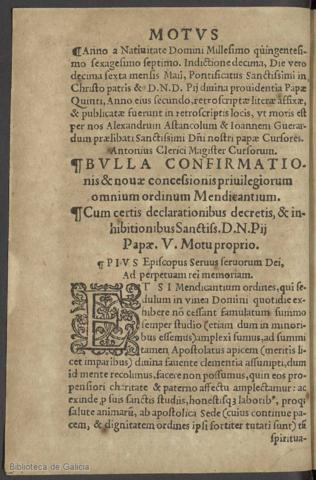 MOTVS
¶Anno a Natiuitate Domini Millesimo quingentesi-
mo sexagesimo septimo. Indictione decima, Die vero
decima sexta mensis Maii, Pontificatus Sanctissimi in
Christo patris & D.N.D. Pij diuina prouidentia Papæ
Quinti, Anno eius secundo, retroscriptæ literæ affixæ,
& publicatæ fuerunt in retroscriptis locis, vt moris est
per nos Alexandrum Astancolum & Ioannem Guerar-
dum prælibati Sanctissimi Dñi nostri papæ Cursores.
Antonius Clerici Magister Cursorum.
¶BVLLA CONFIRMATIO-
nis & nouæ concessionis priuilegiorum
omnium ordinum Mendicantium.
¶Cum certis declarationibus decretis, & in-
hibitionibus Sanctiss. D.N. Pij
Papæ. V. Motu proprio.
¶PIVS Episcopus Seruus seruorum Dei,
Ad perpetuam rei memoriam.
ETSI Mendicantium ordines, qui se-
dulum in vinea Domini quotidie ex-
hibere nō cessant famulatum summo
semper studio (etiam dum in minori-
bus essemus) amplexi fumus, ad summi
tamen Apostolatus apicem (meritis li-
cet imparibus) diuina fauente clementia assumpti, dum
id mente recolimus, facere non possumus, quin eos pro-
pensiori charitate & paterno affectu amplectamur: ac
exinde, ꝓ suis sanctis studiis, honestisq; laborib⁹, proq;
salute animarū, ab apostolica Sede (cuius continue pa-
cem, & dignitatem ordines ipsi fortiter tutati sunt) tā
spiritua-
Biblioteca de Galicia